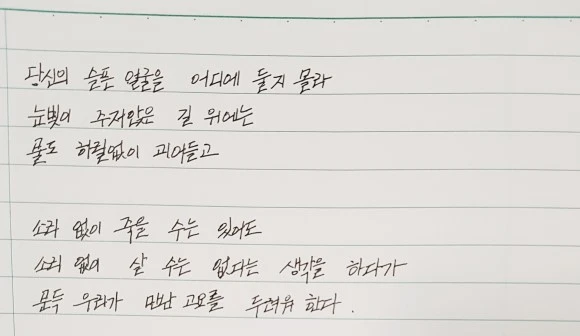 당신의 슬픈 얼굴을 어디에 둘지 몰라
눈빛이 주저앉은 길 위에는
물도 하릴없이 괴어들고
소리 없이 죽을 수는 있어도
소리 없이 살 수는 없다는 생각을 하다가
문득 우리가 만난 고요를 두려워 한다.